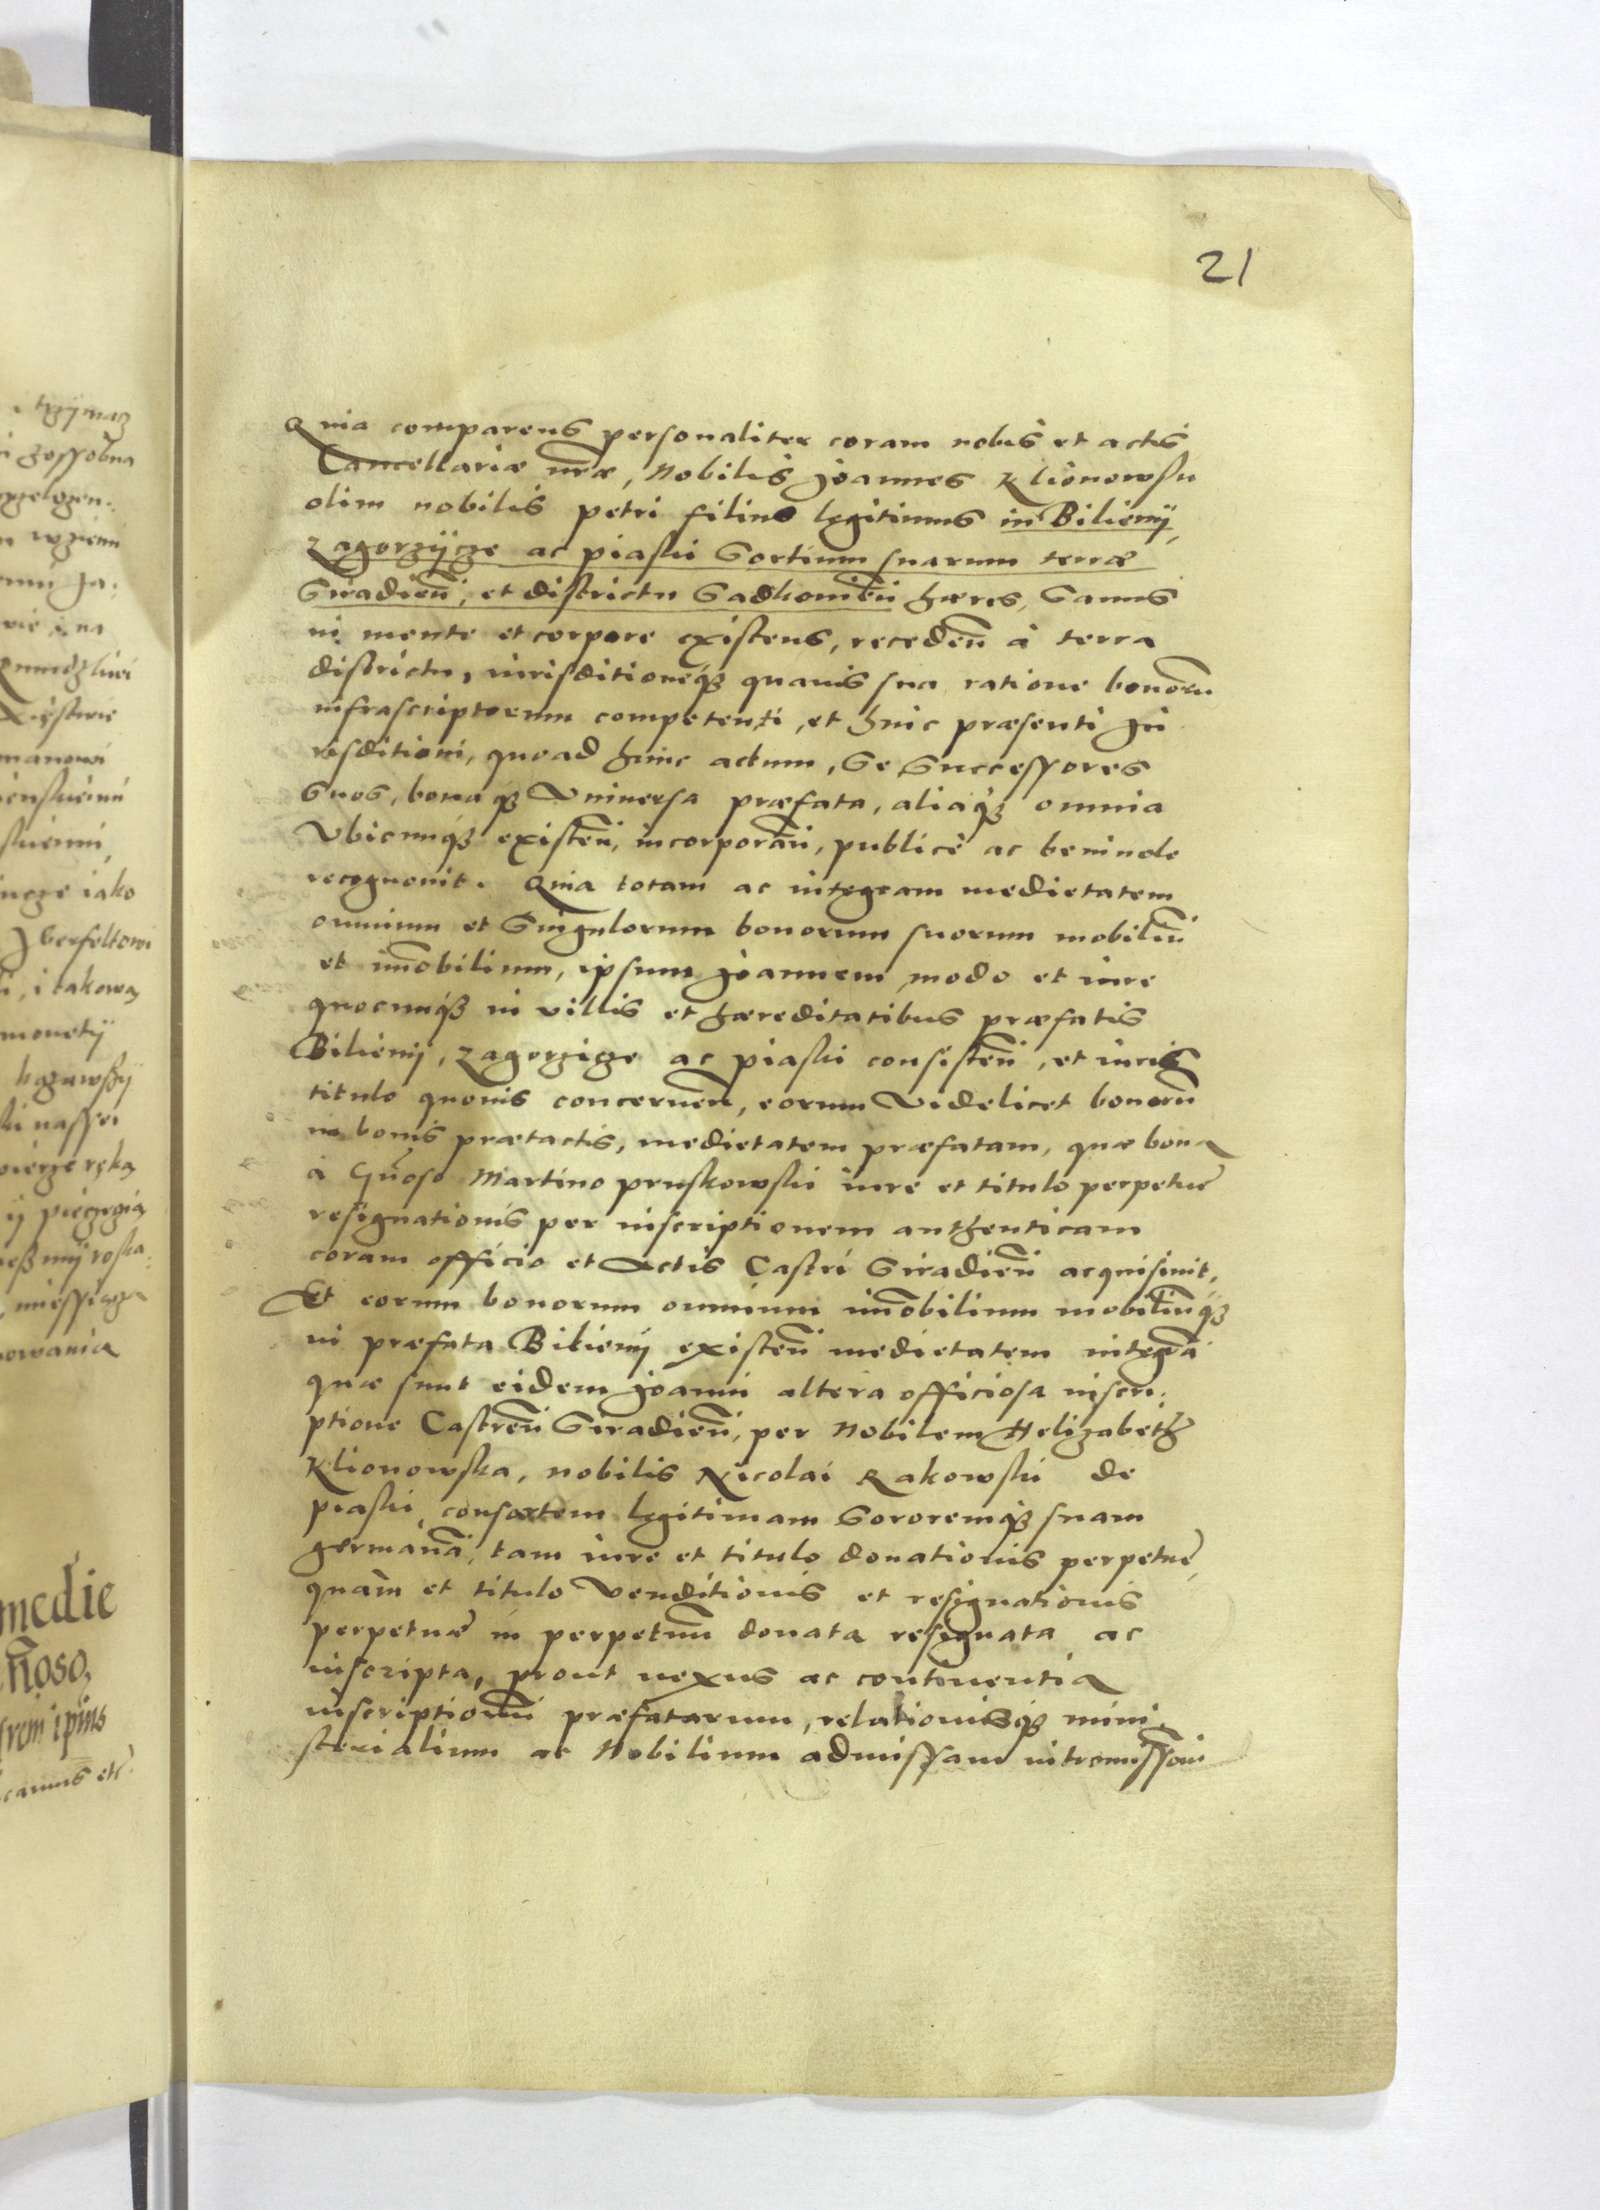 21
Quia comparens personaliter coram nobis et actis
Cancellariæ nr̄æ, Nobilis Joannes Klionowsky
olim nobilis petri filius legitimus in Bilieny,
Zagorzycze ac piaski Sortium suarum terræ
Siradien̄, et districtu Sadkowien̄ hæres, Sanus
in mente et corpore existens, receden̄ à terra
districtu, iurisditioneq3 quauis sua ratione bonorū
infrascriptorum competenti, et huic præsenti Ju
risditioni, quo ad hunc actum, Se Successores
Suos, bonaq3 Vniuersa præfata, aliaq3 omnia
Vbicunq3 existen̄, incorporan̄, publicè ac beniuole
recognouit. Quia totam ac integram medietatem
omnium et Singulorum bonorum suorum mobiliū
et im̄obilium, ipsum Joannem modo et iure
quocunq3 in villis et hæreditatibus præfatis
Bilieny, Zagorzicze ac piaski consisten̄, et iuris
titulo quouis concernen̄, eorum Videlicet bonorū
in bonis prætactis, medietatem præfatam, quæ bona
à Gn̄oso Martino pruskowski iure et titulo perpetuæ
resignationis per inscriptionem authenticam
coram officio et Actis Castri Siradien̄ acquisiuit,
Et eorum bonorum omnium im̄obilium mobiliūq3
in præfata Bilieny existen̄ medietatem integrā
quæ sunt eidem Joanni altera officiosa inscri
ptione Castren̄ Siradien̄, per Nobilem Helizabeth
Klionowska, nobilis Nicolai Rakowski de
piaski consortem legitimam Sororemq3 suam
germanā, tam iure et titulo donationis perpetuæ,
quàm et titulo Venditionis et resignationis
perpetuæ in perpetuū donata resignata ac
inscripta, prout nexus ac continentia
inscriptionū præfatarum, relationisq3 mini
sterialium ac Nobilium admissam
medie
n̄oso,